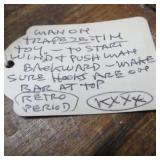 MAN ON
TRAPEZE-TIN
TOY. - TO START
WIND & PUSH MAN
BACKWARD - MAKE
SURE HOOKS ARE ON
BAR AT TOP
RETRO
PERIOD
KXXX